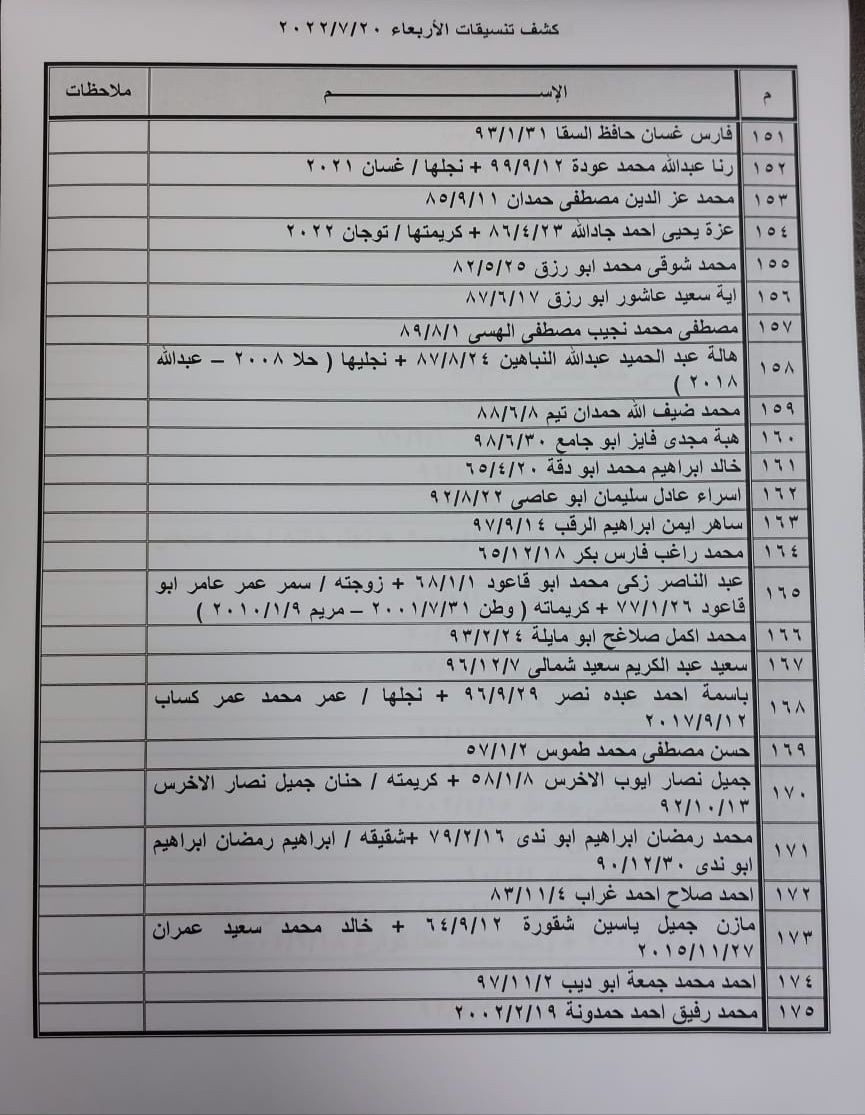 كشف تنسيقات الأربعاء ٢٠٢٢/٧/٢٠
م الإســـــــــــــــــم ملاحظات
١٥١ فارس غسان حافظ السقا ٩٣/١/٣١
١٥٢ رنا عبدالله محمد عودة ٩٩/٩/١٢ + نجلها / غسان ٢٠٢١
١٥٣ محمد عز الدين مصطفى حمدان ٨٥/٩/١١
١٥٤ عزة يحيى احمد جادالله ٨٦/٤/٢٣ + كريمتها / توجان ٢٠٢٢
١٥٥ محمد شوقى محمد ابو رزق ٨٢/٥/٢٥
١٥٦ اية سعيد عاشور ابو رزق ٨٧/٦/١٧
١٥٧ مصطفى محمد نجيب مصطفى الهسى ٨٩/٨/١
١٥٨ هالة عبد الحميد عبدالله النباهين ٨٧/٨/٢٤ + نجليها ( حلا ٢٠٠٨ – عبدالله
٢٠١٨ )
١٥٩ محمد ضيف الله حمدان تيم ٨٨/٦/٨
١٦٠ هبة مجدى فايز ابو جامع ٩٨/٦/٣٠
١٦١ خالد ابراهيم محمد ابو دقة ٦٥/٤/٢٠
١٦٢ اسراء عادل سليمان ابو عاصى ٩٢/٨/٢٢
١٦٣ ساهر ايمن ابراهيم الرقب ٩٧/٩/١٤
١٦٤ محمد راغب فارس بكر ٦٥/١٢/١٨
١٦٥ عبد الناصر زكى محمد ابو قاعود ٦٨/١/١ + زوجته / سمر عمر عامر ابو
قاعود ٧٧/١/٢٦ + كريماته ( وطن ٢٠٠١/٧/٣١ – مريم ٢٠١٠/١/٩ )
١٦٦ محمد اكمل صلاغح ابو مايلة ٩٣/٢/٢٤
١٦٧ سعيد عبد الكريم سعيد شمالى ٩٦/١٢/٧
١٦٨ باسمة احمد عبده نصر ٩٦/٩/٢٩ + نجلها / عمر محمد عمر كساب
٢٠١٧/٩/١٢
١٦٩ حسن مصطفى محمد طموس ٥٧/١/٢
١٧٠ جميل نصار ايوب الاخرس ٥٨/١/٨ + كريمته / حنان جميل نصار الاخرس
٩٢/١٠/١٣
١٧١ محمد رمضان ابراهيم ابو ندى ٧٩/٢/١٦ +شقيقه / ابراهيم رمضان ابراهيم
ابو ندى ٩٠/١٢/٣٠
١٧٢ احمد صلاح احمد غراب ٨٣/١١/٤
١٧٣ مازن جميل ياسين شقورة ٦٤/٩/١٢ + خالد محمد سعيد عمران
٢٠١٥/١١/٢٧
١٧٤ احمد محمد جمعة ابو ديب ٩٧/١١/٢
١٧٥ محمد رفيق احمد حمدونة ٢٠٠٢/٢/١٩